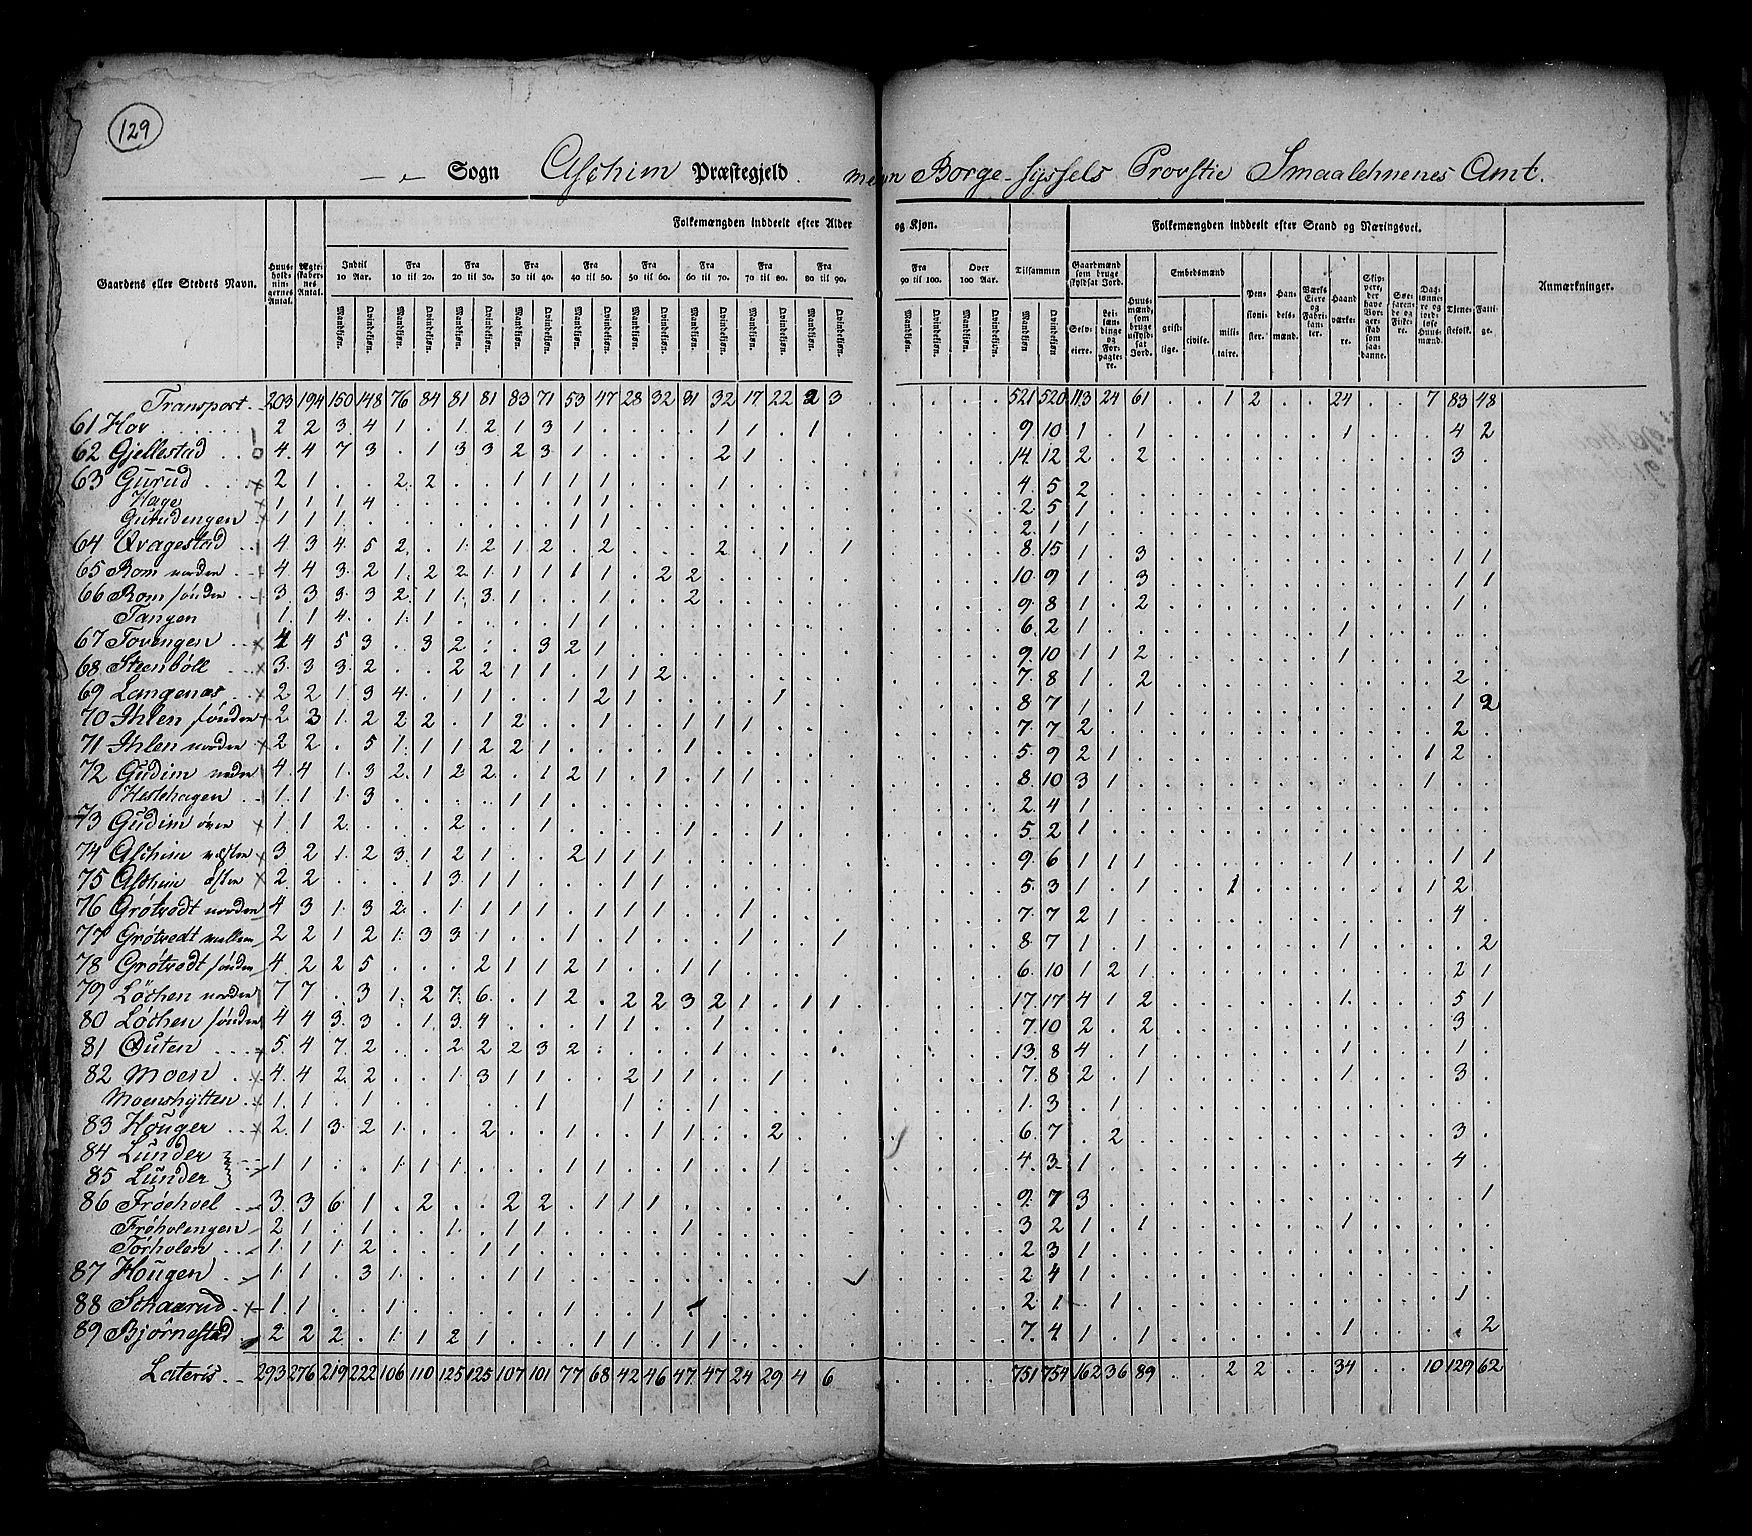 129
Sogn Aschim Præstegjeld Borge-Syssels Provstie Smaalehnenes Amt.
Gaardens eller Stedets Navn. Huus-holdnin-gernes Antal. Ægte-skaber-nes Antal. Folkemængden inddeelt efter Alder og Kjøn. Tilsammen Folkemængden inddeelt efter Stand og Næringsvei. Anmærkninger.
Indtil 10 Aar. Fra 10 til 20. Fra 20 til 30. Fra 30 til 40. Fra 40 til 50. Fra 50 til 60. Fra 60 til 70. Fra 70 til 80. Fra 80 til 90. Fra 90 til 100. Over 100 Aar.
Gaardmænd som bruge skyldsat Jord. Huus-mænd, som bruge uskyld-sat Jord. Embedsmænd Pen-sioni-ster. Han-dels-mænd. Værks Eiere og Fabri-kan-ter. Haand-værke-re. Skip-pere, der have Bor-ger-skab som saa-danne. Søe-faren-de og Fiske-re. Dag-lønne-re og jord-løse Huus-mænd. Tjene-stefolk. Fatti-ge.
Mandkjøn. Qvindekjøn.
Selv-eiere. Lei-læn-dinge og For-pagte-re. geist-lige. civile. mili-taire.
Transport 203 194 150 148 76 84 81 81 83 71 53 47 28 32 31 32 17 22 2 3 . . . . 521 520 113 24 61 . . 1 2 . . 24 . . 7 83 48
61 Hov 2 2 3 4 1 . 1 2 1 3 1 . . . . 1 1 . 1 . 9 10 1 . 1 1 4 2
62 Gjellestad 4 4 7 3 . 1 3 3 2 3 1 . . . . 2 1 14 12 2 . 2 3
63 Gurud 2 1 . . 2 2 . . 1 1 1 1 . . . 1 4 5 2
Hage 1 1 1 4 . . . . . . 1 1 2 5 1
Gurudengen 1 1 1 . . . . . . . 1 1 2 1 1
64 Qvagestad 4 3 4 5 2 . 1 2 1 2 . 2 . . . 2 . 1 . 1 8 15 1 . 3 1 1
65 Rom norden 4 4 3 2 1 2 2 1 1 1 1 1 . 2 2 10 9 1 . 3 1 1
66 Rom sønden 3 3 3 3 2 1 1 3 1 . . 1 . . 2 9 8 1 . 2 1
Tangen 1 1 4 . 1 1 . . . . 1 1 6 2 1 1
67 Tovengen 4 4 5 3 . 3 2 . . 3 2 1 9 10 1 1 2 1
68 Steenböll 3 3 3 2 . . 2 2 1 1 . 1 1 2 7 8 1 . 2 2
69 Langenæs 2 2 1 3 4 . 1 1 . . 1 2 1 . . . . 1 8 7 1 . 1 1 2
70 Ihlen sønden 2 3 1 2 2 2 . 1 2 . . 1 . . 1 1 1 7 7 2 2
71 Ihlen norden 2 2 . 5 1 1 1 2 2 1 . . . . 1 5 9 2 1 1 2
72 Gudim neder 4 4 1 3 2 1 2 2 . 1 2 1 . 1 . 1 1 8 10 3 1 1
Heslehagen 1 1 1 3 . . . . 1 1 2 4 1
73 Gudim över 1 1 2 . . . 2 . . 1 . . . . 1 . . 1 5 2 1
74 Aschim vesten 3 2 1 2 3 1 2 1 . . 2 1 1 1 9 6 1 1 1 1 1 1
75 Aschim østen 2 2 . . . 1 3 1 1 . . . 1 1 5 3 1 . 1 1 1 2
76 Grötvedt norden 4 3 1 3 2 . 1 1 1 1 . 1 1 1 . . 1 7 7 2 1 4
77 Grötvedt mellem 2 2 1 2 1 3 3 1 . . 1 . 1 . . . 1 . . 1 8 7 1 . 1 1 2
78 Grötvedt sønden 4 2 2 5 . . . 2 1 1 2 1 . . 1 1 6 10 1 2 1 2 1
79 Löchen norden 7 7 . 3 1 2 7 6 . 1 2 . 2 2 3 2 1 . 1 1 17 17 4 1 2 1 5 1
80 Löchen sønden 4 4 3 3 . 1 3 4 . . . 1 1 . . 1 7 10 2 . 2 3
81 Outen 5 4 7 2 . . 2 2 2 3 2 . . . . 1 13 8 4 . 1 1 1
82 Moen 4 4 2 2 . . 1 3 1 1 . . 2 1 1 . . 1 7 8 2 . 1 1 3
Moenshytten 1 1 . 1 . . . . . 1 . . 1 . . 1 1 3 . 1
83 Houger 2 1 3 2 1 . . 2 . . 1 . . 1 1 . . 2 6 7 . 2 3
84 Lunder
85 Lunder 1 1 . . 1 1 1 . . . 1 1 . . 1 . . 1 4 3 1 4
86 Fröehoel 3 3 6 1 . 2 . . 2 2 . 1 1 1 9 7 3 1
Fröholengen 2 1 . 1 . . 1 . 1 1 . . . . 1 3 2 1 . 1 1
Torholen 1 1 1 2 . . . 1 1 2 3 1
87 Hougen 1 1 . 3 1 . . . 1 1 2 4 1
88 Schaarud 1 1 . . 1 . . . . . 1 . . 1 2 1 . 1 1
89 Bjørnestad 2 2 2 . 1 1 2 1 . . . 1 1 . 1 1 7 4 1 . 1 1 . 2
Lateris 293 276 219 222 106 110 125 125 107 101 77 68 42 46 47 47 24 29 4 6 . . . . 751 754 162 36 89 . . 2 2 . . 34 . . 10 129 62